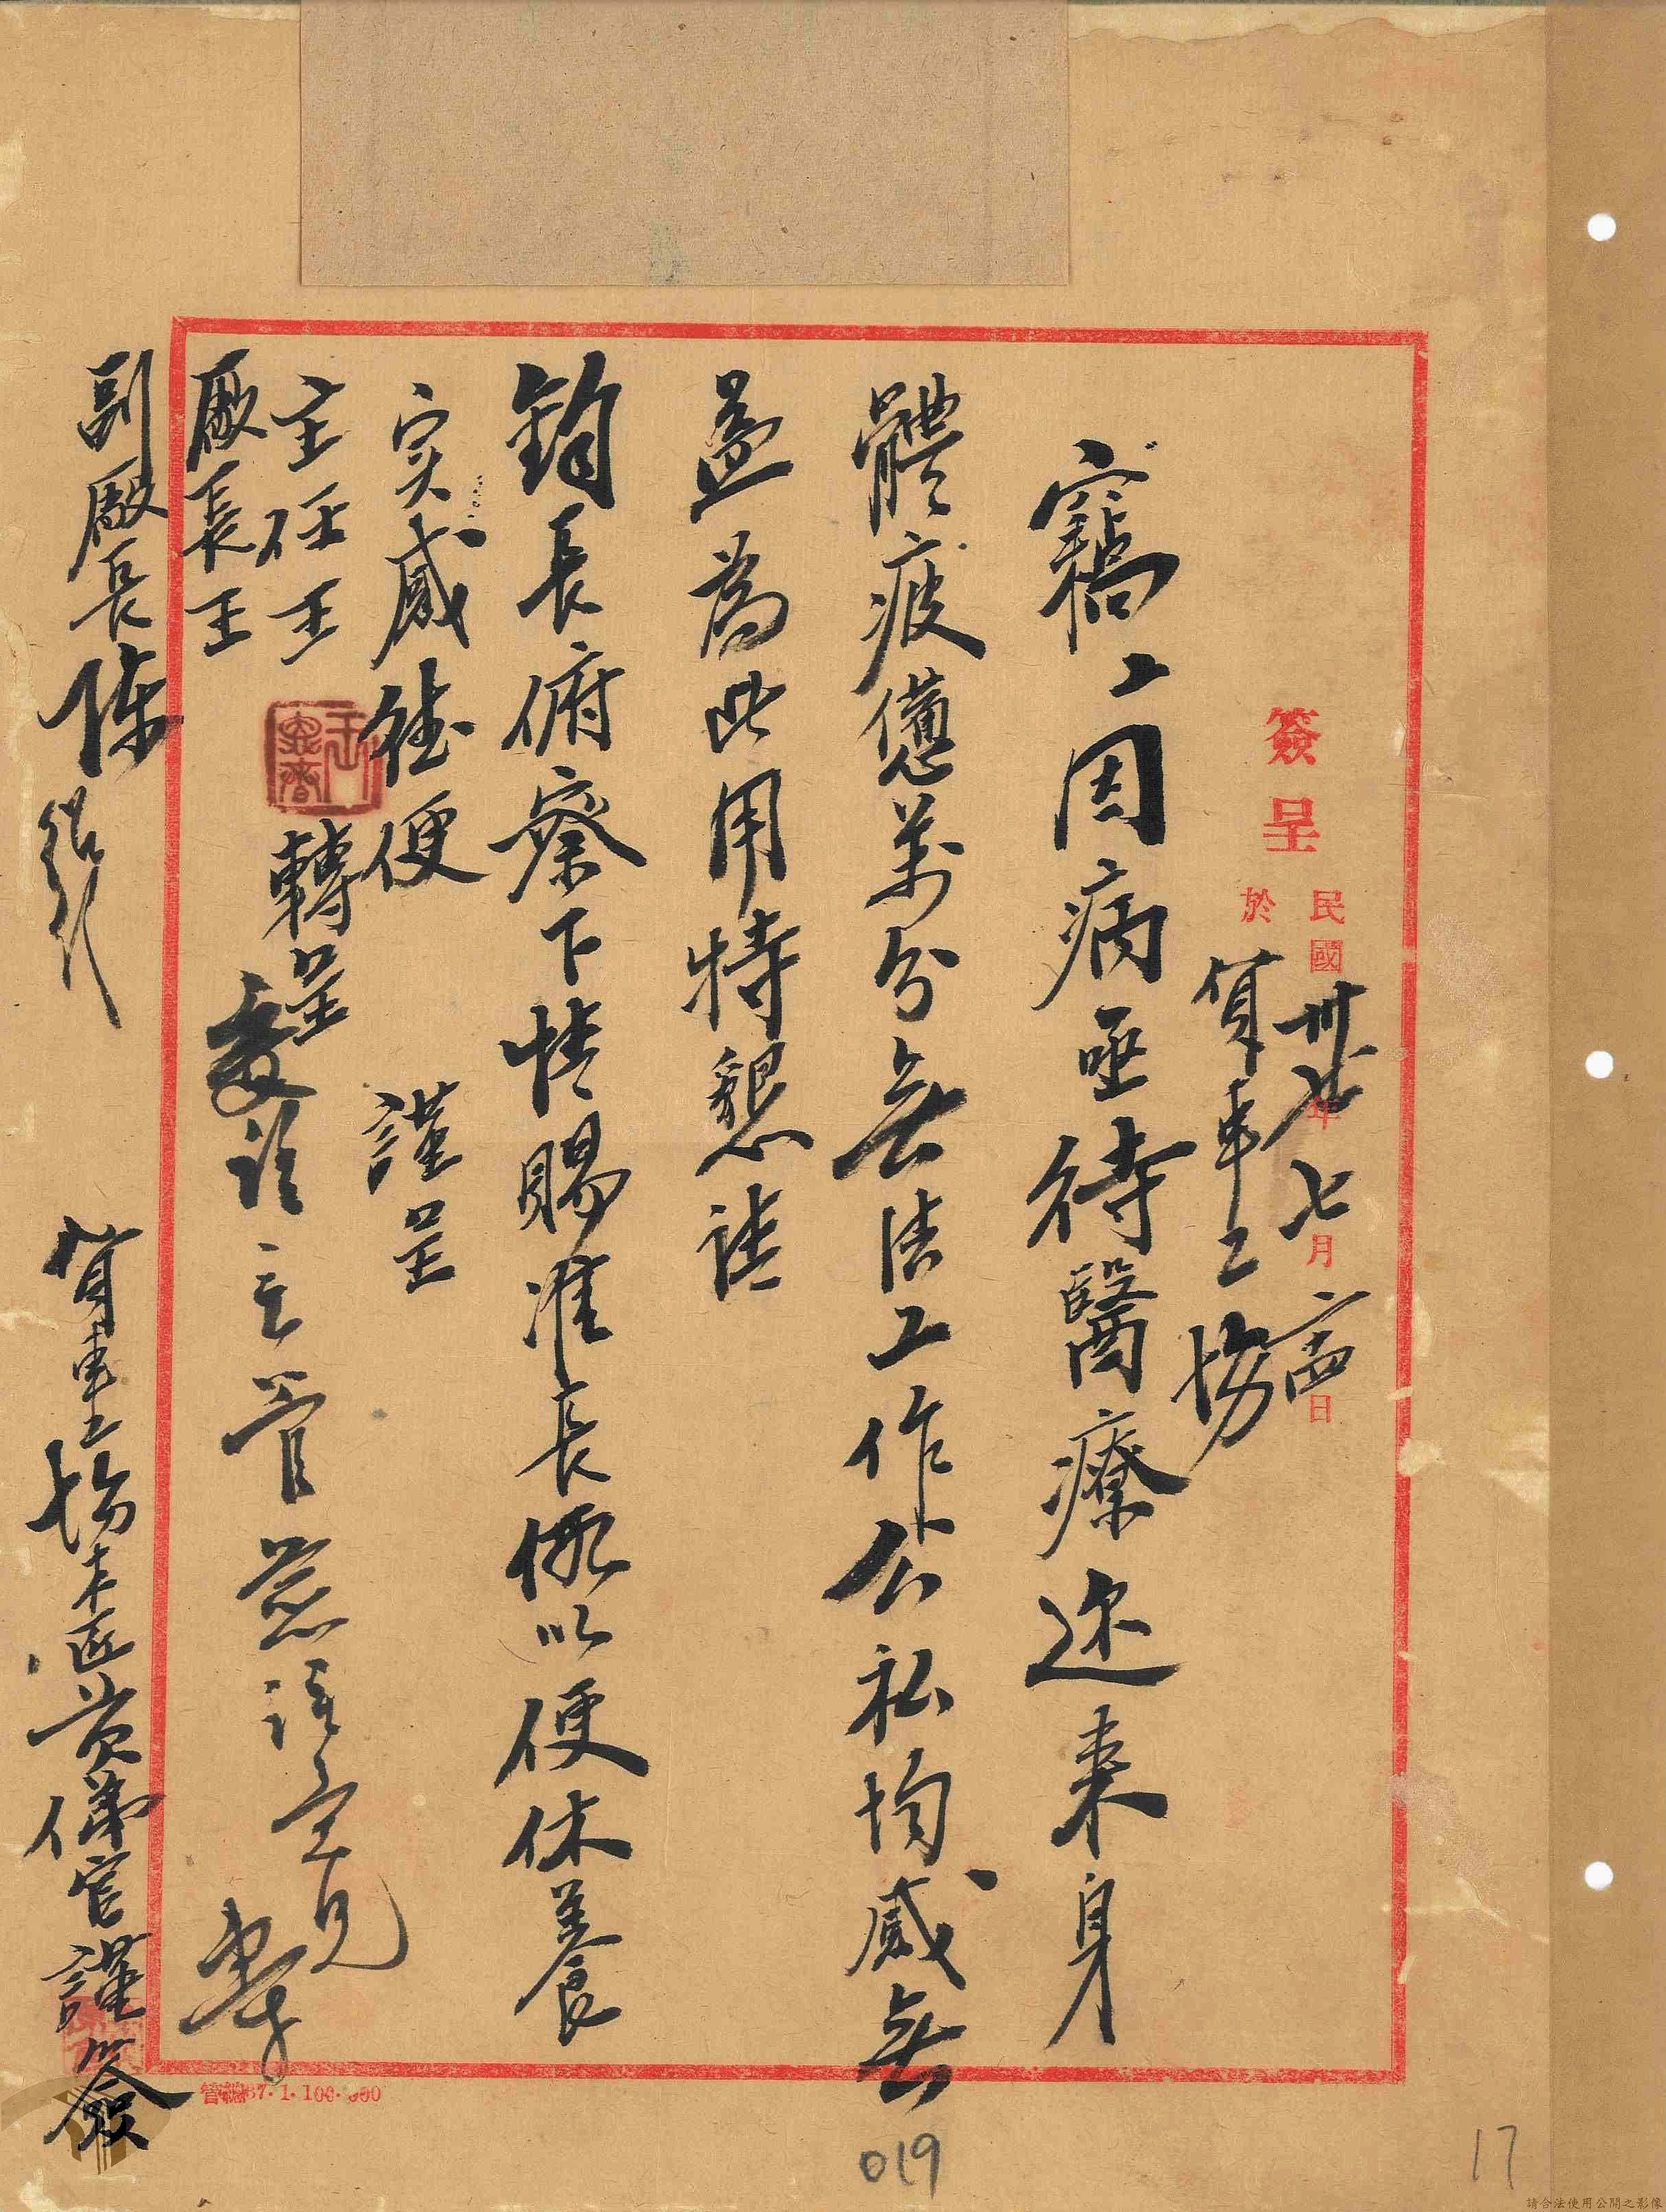 簽呈
民國卅七年七月廿四日
於貨車工場
竊工因病亟待醫療近來身
體疲憊萬分無法工作公私均感無
益為此用特懇請
鈞長俯察下情賜准長假以便休養
实感德便
謹呈
主任王 轉呈
廠長王
副廠長陳
主管
貨車工場木匠黃儀官謹簽
019
17
請合法使用公開之影像